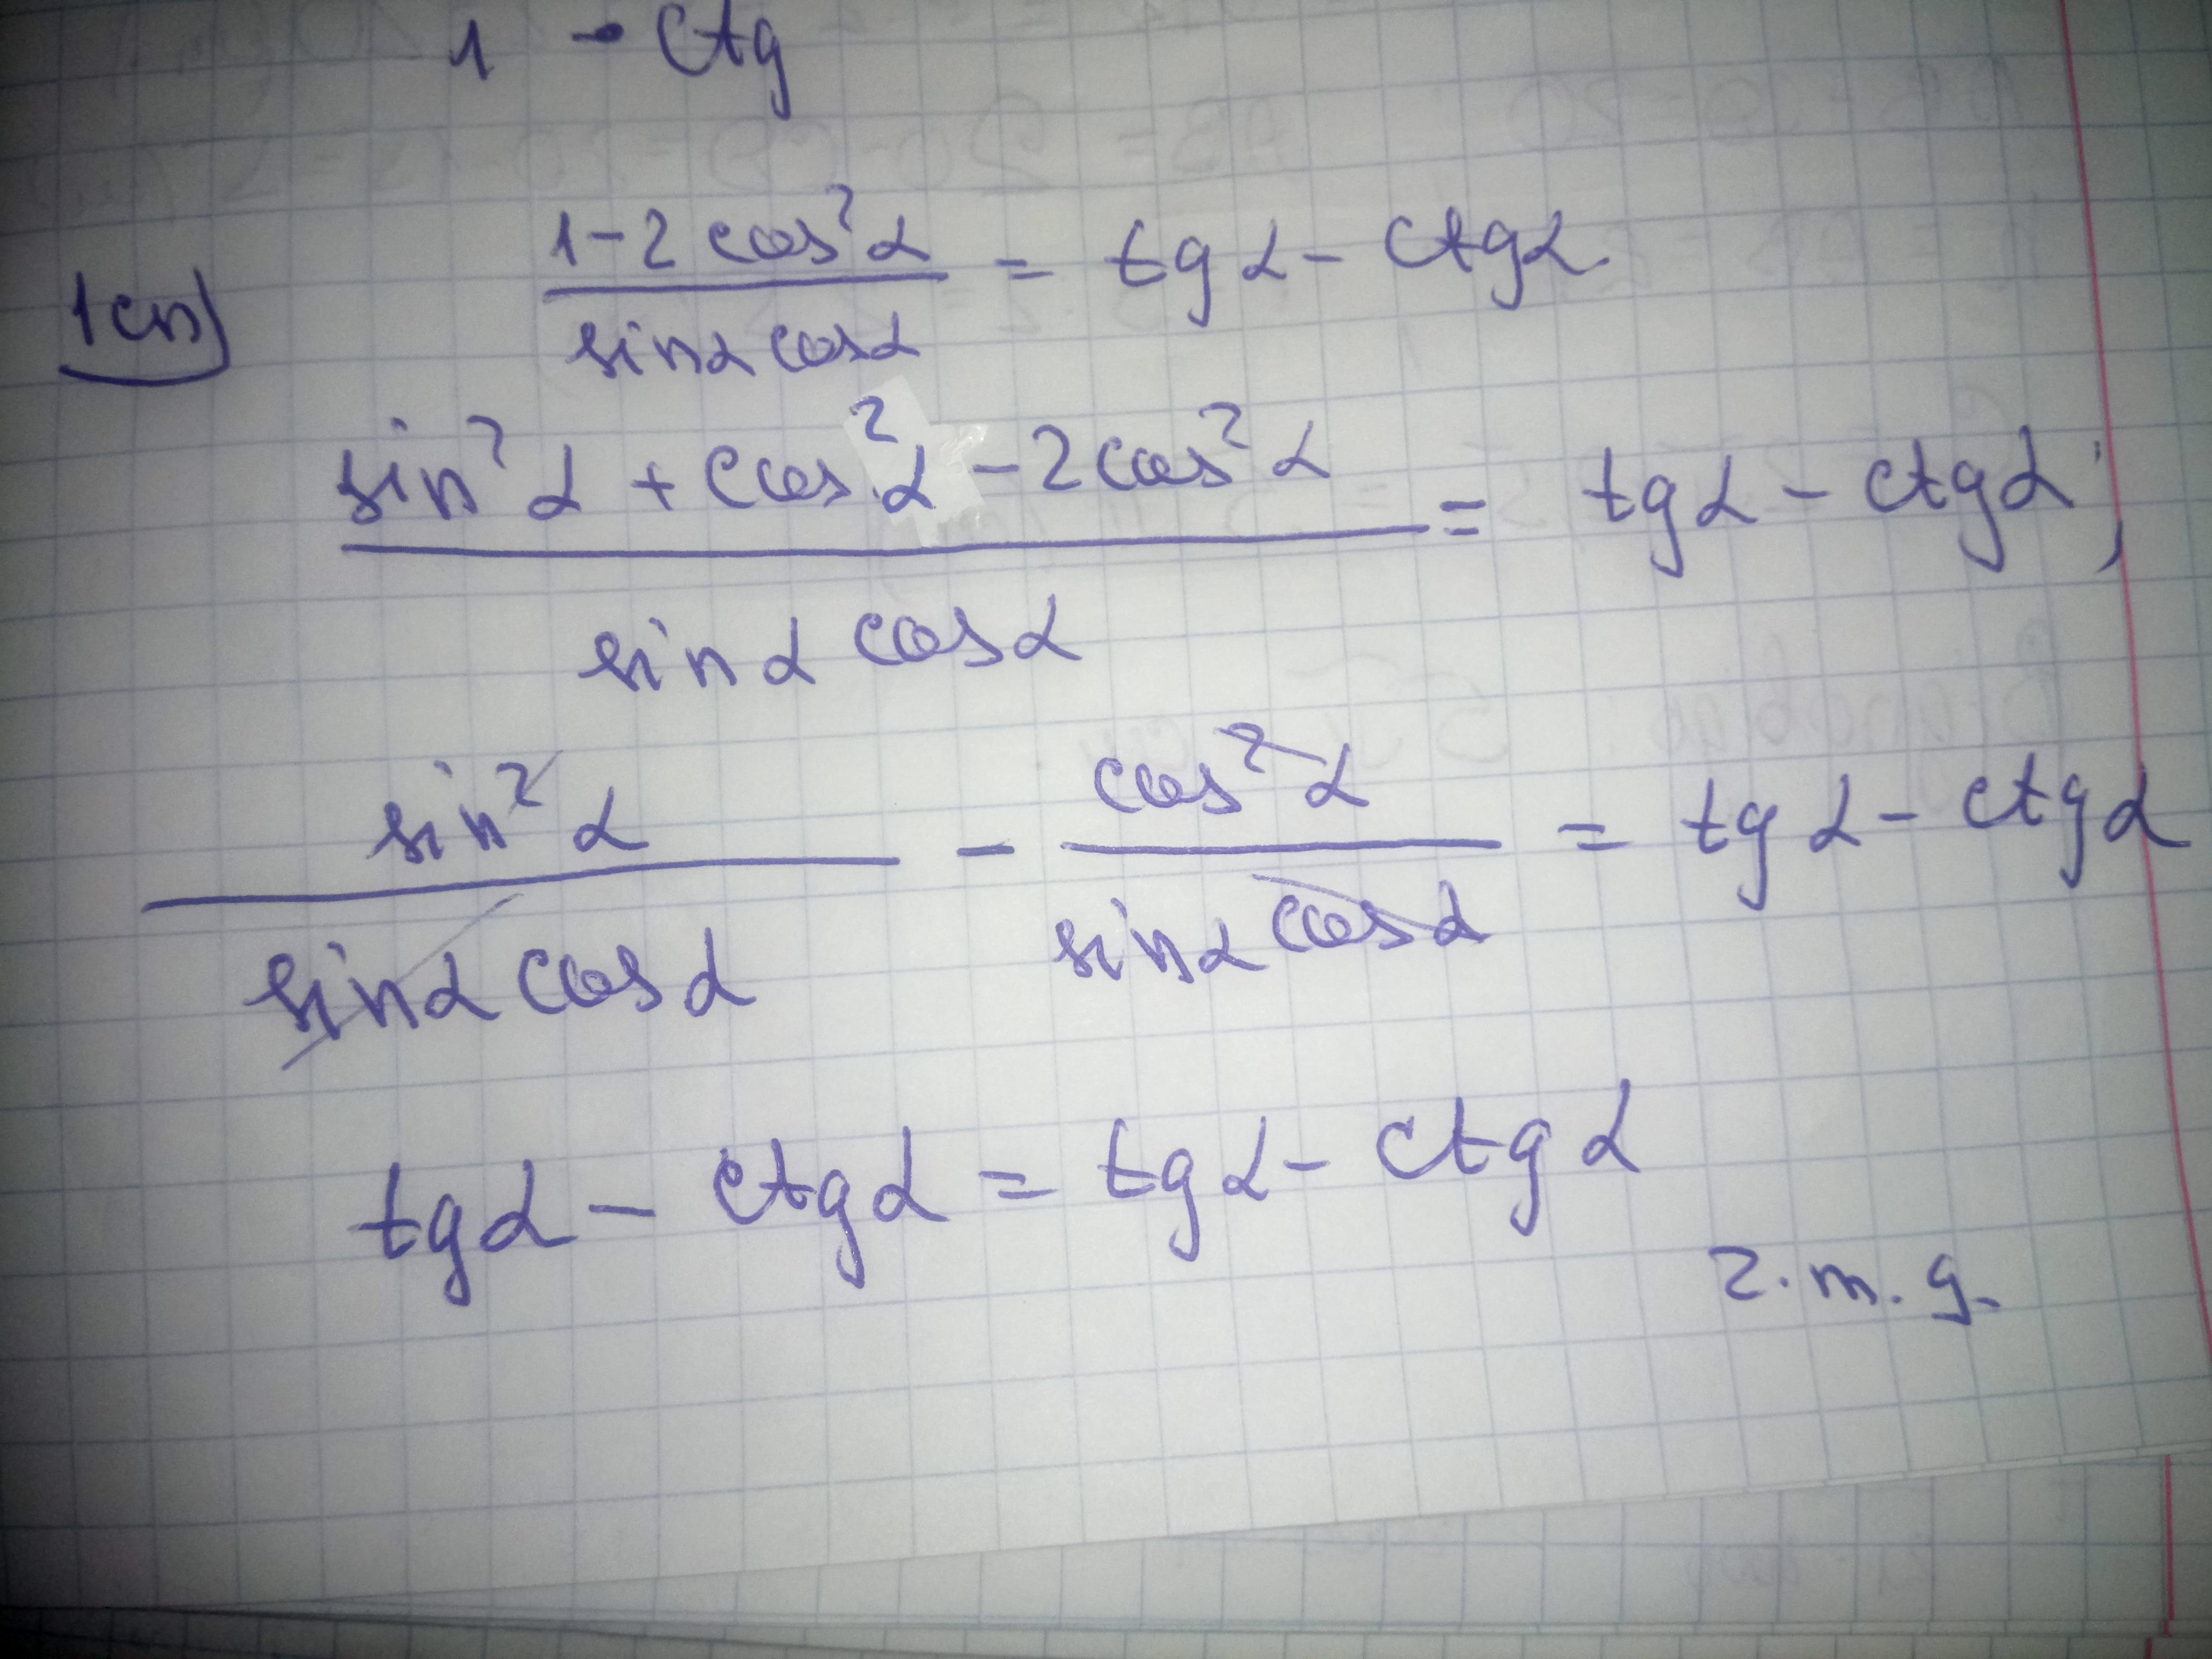 1 - ctg
1 сп) (1-2cos²α)/(sinα cosα) = tgα - ctgα.
(sin²α + cos²α - 2cos²α)/(sinα cosα) = tgα - ctgα;
(sin²α)/(sinα cosα) - (cos²α)/(sinα cosα) = tgα - ctgα
tgα - ctgα = tgα - ctgα
г.т.д.